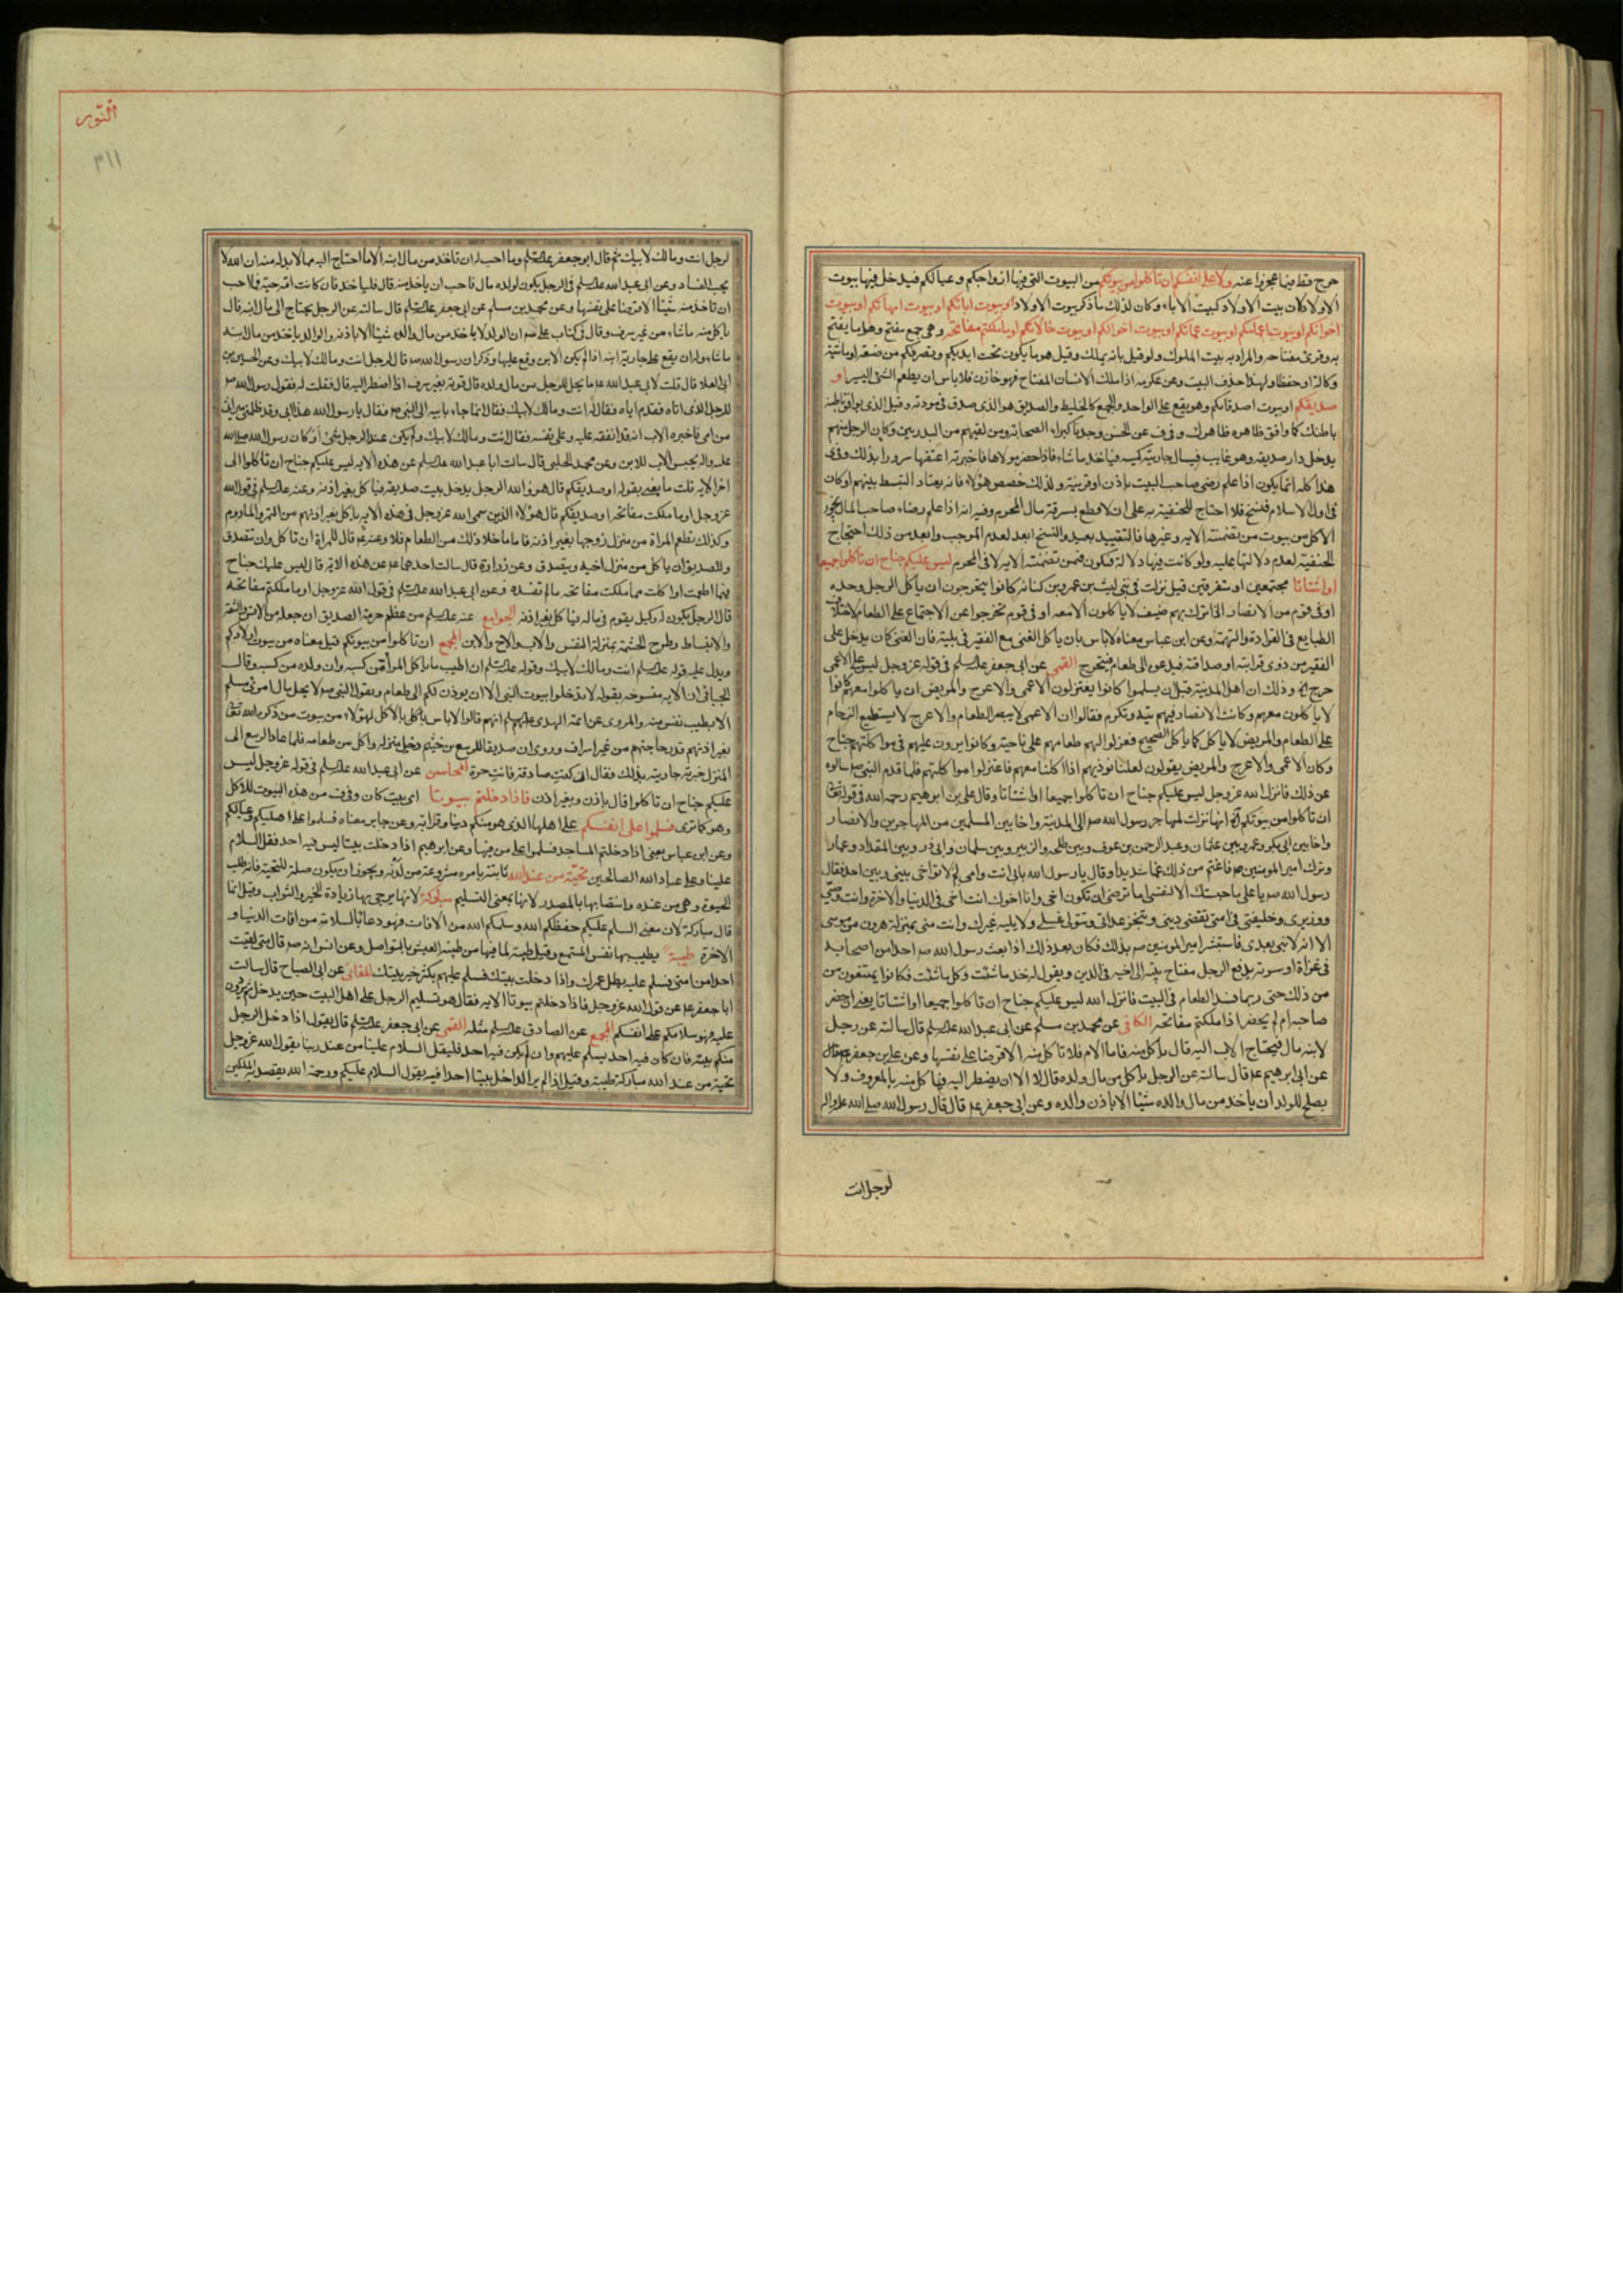 حرج فقط فيما عجزوا عنه ولا على انفسكم ان تاكلوا من بيوتكم من البيوت التي فيها ازواجكم وعيالكم فيدخل فيها بيوت
الاولاد لان بيت الاولاد كبيت الاباء وكان لذلك ما ذكر بيوت الاولاد او بيوت ابائكم او بيوت امهاتكم او بيوت
اخوانكم او بيوت اعمامكم او بيوت عماتكم او بيوت اخوالكم او بيوت خالاتكم او ما ملكتم مفاتحه وهي جمع مفتح وهو ما يفتح
به وقرئ مفتاحه والمراد به بيت المملوك ولو قيل بانه يملك وقيل هو ما يكون تحت ايديكم وتصرفكم من ضيعة او ماشية
وكالة او حفظا ولهذا حذف البيت وعن عكرمة اذا ملك الانسان المفتاح فهو خازن فلا باس ان يطعم الشئ اليسير او
صديقكم او بيوت اصدقائكم وهو يقع على الواحد والجمع كالخليط والصديق هو الذي صدق في مودته وقيل الذي يوافق باطنه
باطنك كما وافق ظاهره ظاهرك وفي ف عن الحسن وجدنا كبراء الصحابة ومن لقيهم من البدريين وكان الرجل منهم
يدخل دار صديقه وهو غايب فيسال جاريته كيسه فياخذ ما شاء فاذا حضر مولاها فاخبرته اعتقها سرورا بذلك وفي ى
هذا كله انما يكون اذا علم رضى صاحب البيت باذن او قرينة ولذلك خصص هؤلاء فانه يعتاد التبسط بينهم او كان
في اول الاسلام فنسخ فلا احتاج للحنفية به على ان لا قطع بسرقة مال المحرم وفيه انه اذا علم رضاء صاحب المال يجوز
الاكل من بيوت من تضمنته الاية وغيرها فالتقييد بعيد والنسخ ابعد لعدم الموجب وابعد من ذلك احتجاج
الحنفية لعدم دلالتها عليه ولو كانت فيها دلالة فتكون فيمن تضمنته الاية لا في المحرم ليس عليكم جناح ان تاكلوا جميعا
او اشتاتا مجتمعين او متفرقين قيل نزلت في بني ليث بن عمرو بن كنانة كانوا يتحرجون ان ياكل الرجل وحده
او في قوم من الانصار اذا نزل بهم ضيف لا ياكلون الا معه او في قوم تحرجوا عن الاجتماع على الطعام لاختلاف
الطبايع في القزازة والنهمة وعن ابن عباس معناه لا باس بان ياكل الغني مع الفقير في بيته فان الغني كان يدخل على
الفقير من ذوي قرابته او صداقته فيدعوه الى طعامه فيتحرج القمي عن ابي جعفر عليه السلم في قوله عز وجل ليس على الاعمى
حرج الخ وذلك ان اهل المدينة قبل ان يسلموا كانوا يعتزلون الاعمى والاعرج والمريض ان ياكلوا معهم كانوا
لا ياكلون معهم وكانت الانصار فيهم تيه وتكرم فقالوا ان الاعمى لا يبصر الطعام والاعرج لا يستطيع الزحام
على الطعام والمريض لا ياكل كما ياكل الصحيح فعزلوا لهم طعامهم على ناحية وكانوا يرون عليهم في مواكلتهم جناح
وكان الاعمى والاعرج والمريض يقولون لعلنا نوذيهم اذا اكلنا معهم فاعتزلوا مواكلتهم فلما قدم النبي ص سالوه
عن ذلك فانزل الله عز وجل ليس عليكم جناح ان تاكلوا جميعا او اشتاتا وقال علي بن ابرهيم رحمه الله في قوله تعالى
ان تاكلوا من بيوتكم الخ انها نزلت لما هاجر رسول الله ص الى المدينة واخا بين المسلمين من المهاجرين والانصار
واخا بين ابي بكر وعمر وبين عثمان وعبد الرحمن بن عوف وبين طلحة والزبير وبين سلمان وابي ذر وبين المقداد وعمار
وترك امير المومنين ع فاغتم من ذلك غما شديدا وقال يا رسول الله بابي انت وامي لم لا تواخي بيني وبين احد فقال
رسول الله ص يا علي ما حبستك الا لنفسي اما ترضى ان تكون اخي وانا اخوك انت اخي في الدنيا والاخرة وانت وصيي
ووزيري وخليفتي في امتي تقضي ديني وتنجز عداتي وتتولى غسلي ولا يليه غيرك وانت مني بمنزلة هرون من موسى
الا انه لا نبي بعدي فاستبشر امير المومنين ع بذلك فكان بعد ذلك اذا بعث رسول الله ص احدا من اصحابه
في غزاة او سرية يدفع الرجل مفتاح بيته الى اخيه في الدين ويقول له خذ ما شئت وكل ما شئت فكانوا يمتنعون من
من ذلك حتى ربما فسد الطعام في البيت فانزل الله ليس عليكم جناح ان تاكلوا جميعا او اشتاتا يعني ان حضر
صاحبه ام لم يحضر اذا ملكتم مفاتحه الكافي عن محمد بن مسلم عن ابي عبد الله عليه السلم قال سالته عن رجل
لابنه مال فيحتاج الاب اليه قال ياكل منه فاما الام فلا تاكل منه الا قرضا على نفسها وعن علي بن جعفر ع قال
عن ابي ابرهيم ع قال سالته عن الرجل ياكل من مال ولده قال لا الا ان يضطر اليه فياكل منه بالمعروف ولا
يصلح للولد ان ياخذ من مال والده شيئا الا باذن والده وعن ابي جعفر ع قال قال رسول الله صلى الله عليه واله
لرجل انت
النور
٣١١
لرجل انت ومالك لابيك ثم قال ابو جعفر عليه السلم وما احب له ان تاخذ من مال ابنه الا ما احتاج اليه مما لا بد له منه ان الله لا
يحب الفساد وعن ابي عبد الله عليه السلم في الرجل يكون لولده مال فاحب ان ياخذ منه قال فلياخذ فان كانت امه حية فلا احب
ان تاخذ منه شيئا الا قرضا على نفسها وعن محمد بن مسلم عن ابي جعفر عليه السلم قال سالته عن الرجل يحتاج الى مال ابنه قال
ياكل منه ما شاء من غير سرف وقال في كتاب علي ع ان الولد لا ياخذ من مال والده شيئا الا باذنه والوالد ياخذ من مال ابنه
ما شاء وله ان يقع على جارية ابنه اذا لم يكن الابن وقع عليها وذكر ان رسول الله ص قال لرجل انت ومالك لابيك وعن الحسين بن
ابي العلا قال قلت لابي عبد الله ع ما يحل للرجل من مال ولده قال قوته بغير سرف اذا اضطر اليه قال فقلت له فقول رسول الله ص
للرجل الذي اتاه فقدم اباه فقال له انت ومالك لابيك فقال انما جاء بابيه الى النبي ص فقال يا رسول الله هذا ابي وقد ظلمني ميراثي
من امي فاخبره الاب انه قد انفقه عليه وعلى نفسه فقال انت ومالك لابيك ولم يكن عند الرجل شئ او كان رسول الله صلى الله
عليه واله يحبس الاب للابن وعن محمد الحلبي قال سالت ابا عبد الله عليه السلم عن هذه الاية ليس عليكم جناح ان تاكلوا الى
اخر الاية قلت ما يعني بقوله او صديقكم قال هو والله الرجل يدخل بيت صديقه فياكل بغير اذنه وعنه عليه السلم في قول الله
عز وجل او ما ملكت مفاتحه او صديقكم قال هؤلاء الذين سمى الله عز وجل في هذه الاية ياكل بغير اذنهم من التمر والمادوم
وكذلك تطعم المراة من منزل زوجها بغير اذنه فاما ما خلا ذلك من الطعام فلا وعنه ع قال للمراة ان تاكل وان تتصدق
وللصديق ان ياكل من منزل اخيه ويتصدق وعن زرارة قال سالت احدهما ع عن هذه الاية قال ليس عليك جناح
فيما اطعمت او اكلت مما ملكت مفاتحه ما لم تفسده وعن ابي عبد الله عليه السلم في قول الله عز وجل او ما ملكتم مفاتحه
قال الرجل يكون له وكيل يقوم في ماله فياكل بغير اذنه الجوامع عنه عليه السلم من عظم حرمة الصديق ان جعله من الانس والثقة
والانبساط وطرح الحشمة بمنزلة النفس والاب والاخ والابن المجمع ان تاكلوا من بيوتكم قيل معناه من بيوت اولادكم
ويدل عليه قوله عليه السلم انت ومالك لابيك وقوله عليه السلم ان اطيب ما ياكل المرء من كسبه وان ولده من كسبه وقال
الجبائي ان الاية منسوخه بقوله لا تدخلوا بيوت النبي الا ان يوذن لكم الى طعام وبقول النبي ص لا يحل مال امرئ مسلم
الا بطيب نفس منه والمروي عن ائمة الهدى عليهم السلم انهم قالوا لا باس بالاكل لهؤلاء من بيوت من ذكره الله تعالى
بغير اذنهم قدر حاجتهم من غير اسراف وروي ان صديقا للربيع بن خثيم دخل منزله واكل من طعامه فلما عاد الربيع الى
المنزل خبرته جاريته بذلك فقال ان كنت صادقة فانت حرة المحاسن عن ابي عبد الله عليه السلم في قوله عز وجل ليس
عليكم جناح ان تاكلوا قال باذن وبغير اذن فاذا دخلتم بيوتا اي بيت كان وفي ف من هذه البيوت للاكل
وهو كما ترى فسلموا على انفسكم على اهلها الذي هو منكم دينا وقرابة وعن جابر معناه فسلموا على اهليكم وعيالكم
وعن ابن عباس يعني اذا دخلتم المساجد فسلموا على من فيها وعن ابرهيم اذا دخلت بيتا ليس فيه احد فقل السلام
علينا وعلى عباد الله الصالحين تحية من عند الله ثابتة بامره مشروعة من لدنه ويجوز ان يكون صلة للتحية فانه طلب
الحيوة وهي من عنده وانتصابها بالمصدر لانها بمعنى التسليم مباركة لانها يرجى بها زيادة الخير والثواب وقيل انما
قال مباركة لان معنى السلم عليكم حفظكم الله وسلمكم الله من الافات فهو دعاء بالسلامة من افات الدنيا و
الاخرة طيبة يطيب بها نفس المستمع وقيل طيبة لما فيها من طيب العيش بالتواصل وعن انس انه ص قال متى لقيت
احدا من امتي فسلم عليه يطل عمرك واذا دخلت بيتك فسلم عليهم يكثر خير بيتك المعاني عن ابي الصباح قال سالت
ابا جعفر ع عن قول الله عز وجل فاذا دخلتم بيوتا الاية فقال هو تسليم الرجل على اهل البيت حين يدخل ثم يردون
عليه فهو سلامكم على انفسكم المجمع عن الصادق عليه السلم مثله القمي عن ابي جعفر عليه السلم قال يقول اذا دخل الرجل
منكم بيته فان كان فيه احد يسلم عليهم وان لم يكن فيه احد فليقل السلام علينا من عند ربنا يقول الله عز وجل
تحية من عند الله مباركة طيبة وقيل اذا لم ير الداخل بيتا احدا فيه يقول السلام عليكم ورحمة الله يقصد به الملكين